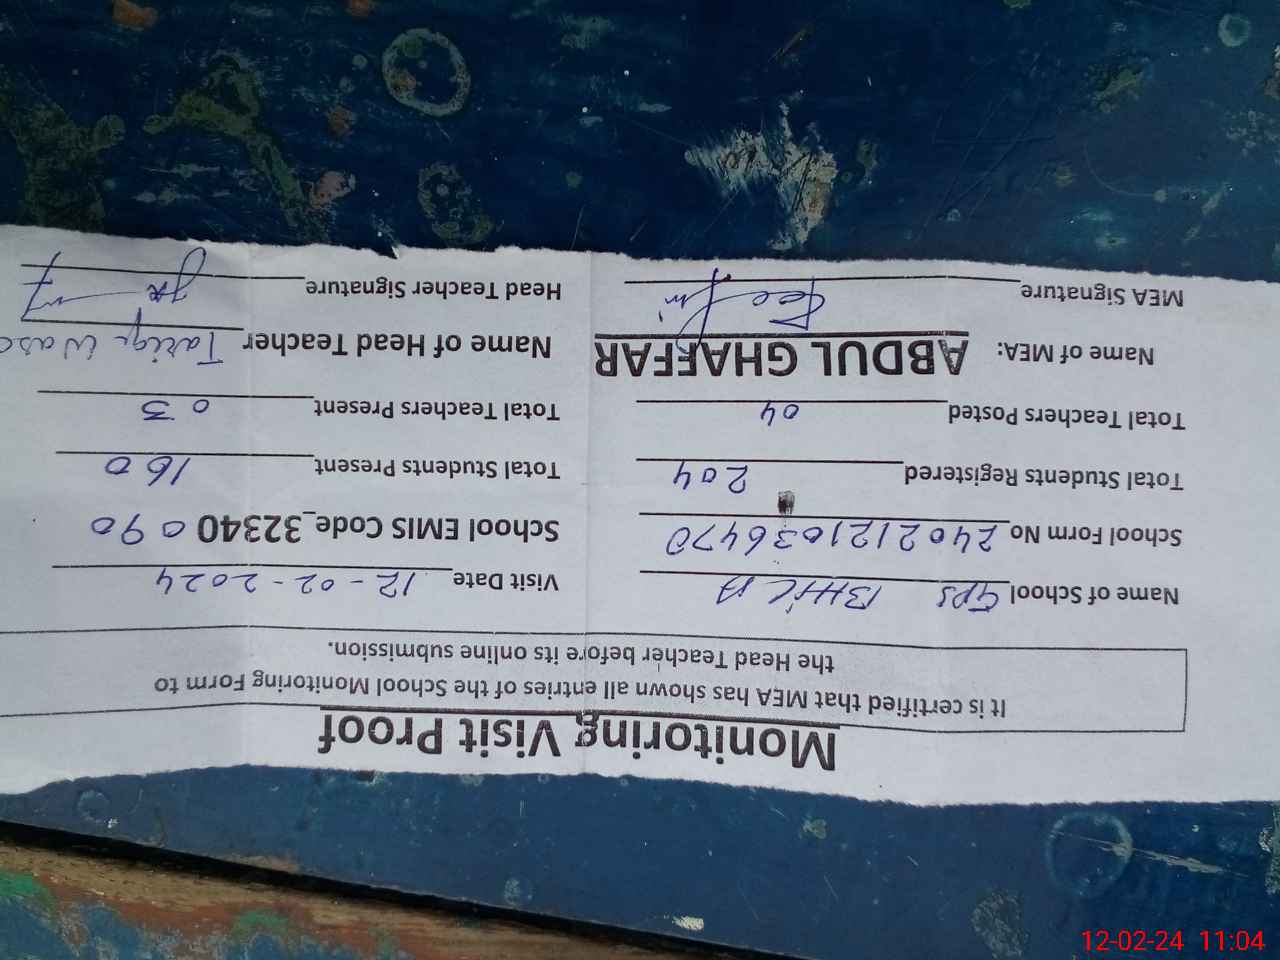 Monitoring Visit Proof
It is certified that MEA has shown all entries of the School Monitoring Form to
the Head Teacher before its online submission.
Name of School GPS Visit Date 12-02-2024
School Form No 2402121036470 School EMIS Code_32340 090
Total Students Registered 204 Total Students Present 160
Total Teachers Posted 04 Total Teachers Present 03
Name of MEA: ABDUL GHAFFAR Name of Head Teacher Tariq
MEA Signature Head Teacher Signature
12-02-24 11:04